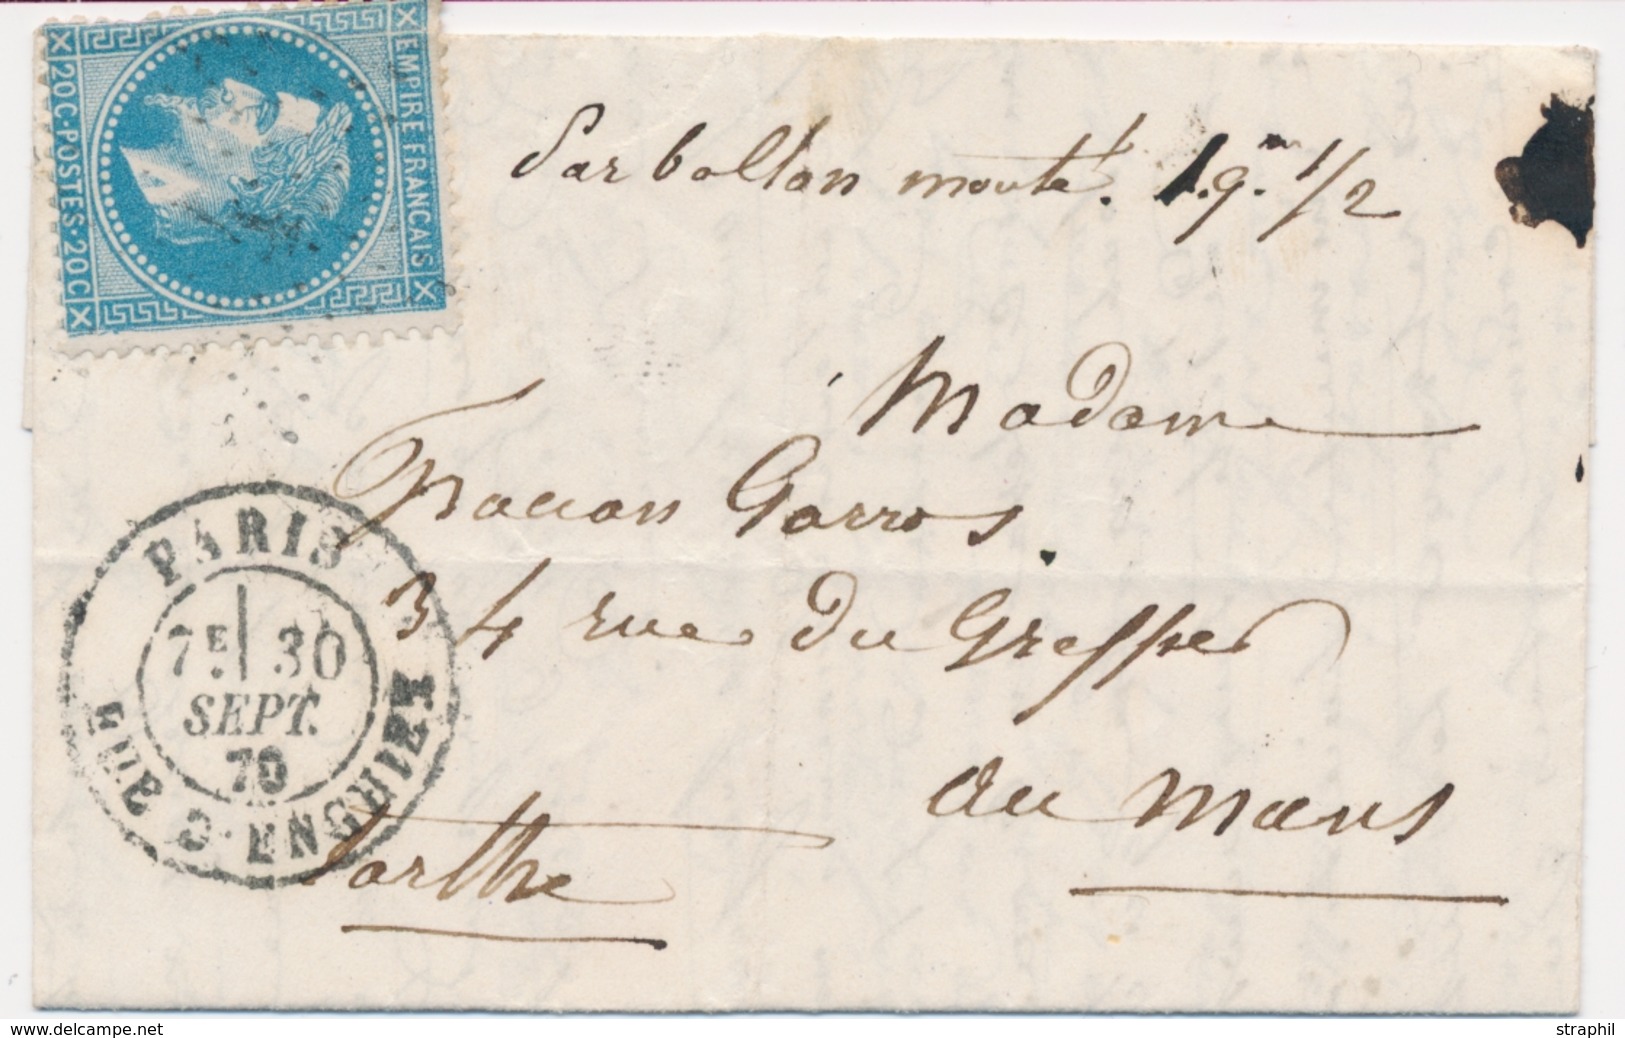 EMPIRE FRANCAIS
20C·POSTES·20C
Par ballon monté. 1.gm. 1/2
Madame
Garros.
34 rue du Greffier
au Mans
Sarthe
PARIS
7E 30
SEPT.
70
RUE D'ENGHIEN
delcampe.net
straphil